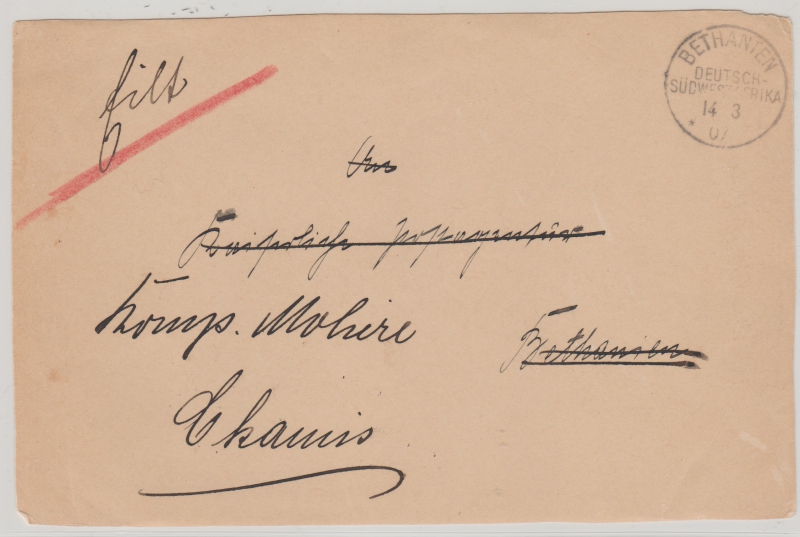 Eilt
BETHANIEN
DEUTSCH-
SÜDWESTAFRIKA
14 3
* 07
An
Kaiserliche Postagentur
Komp. Moliere
Bethanien
Chamis